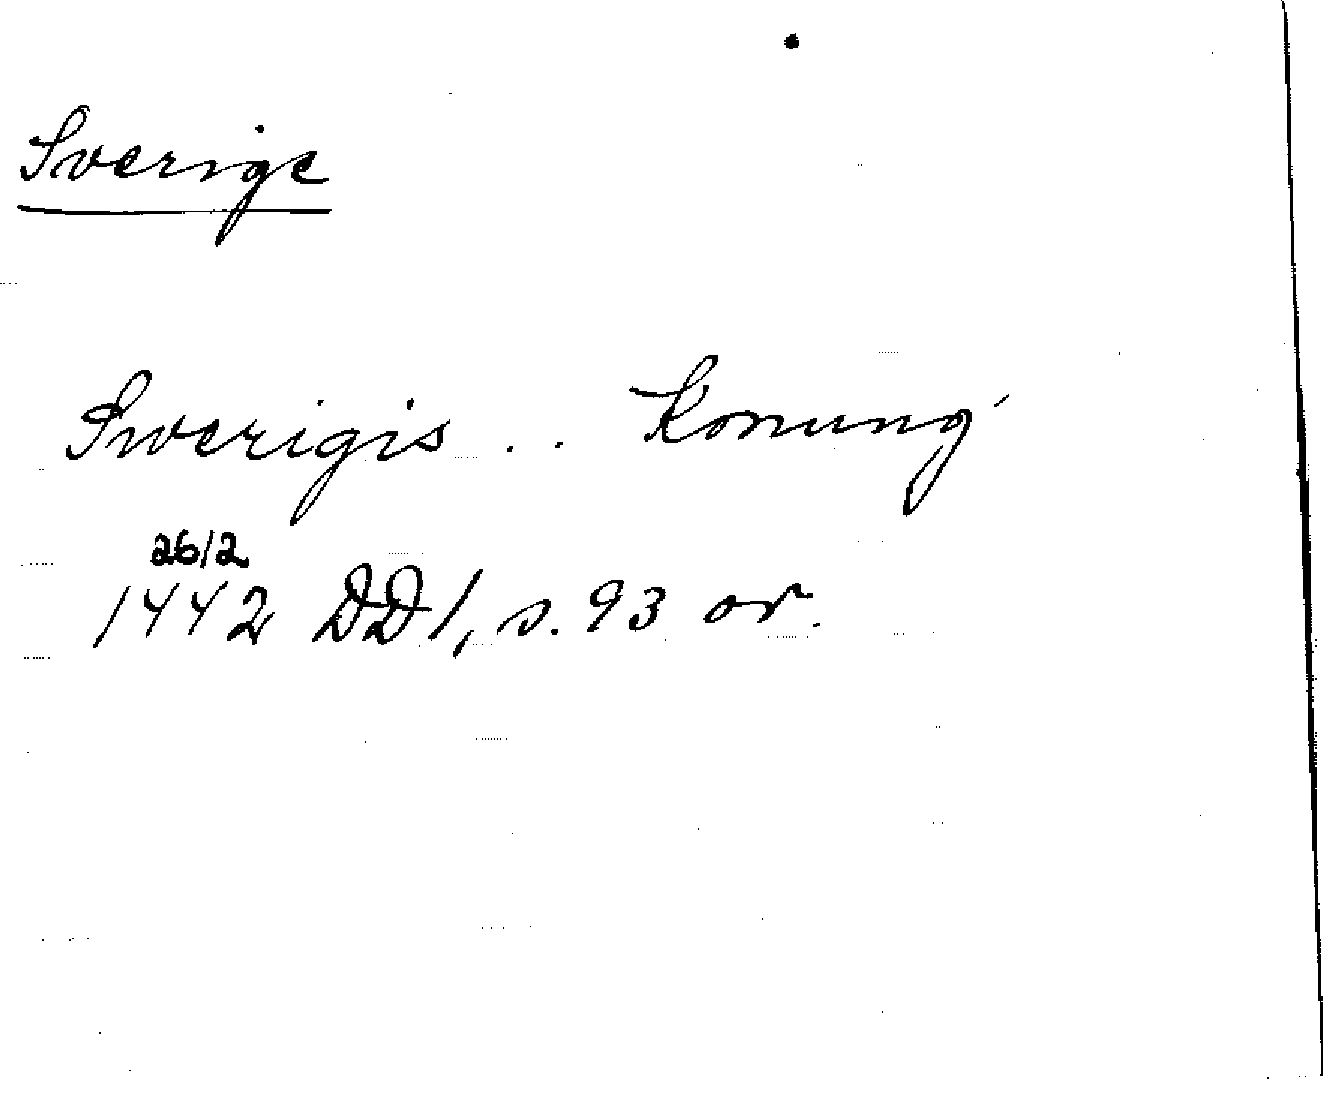 Sverige
Swerigis .. konung
26/2
1442 DD1, s. 93 or.